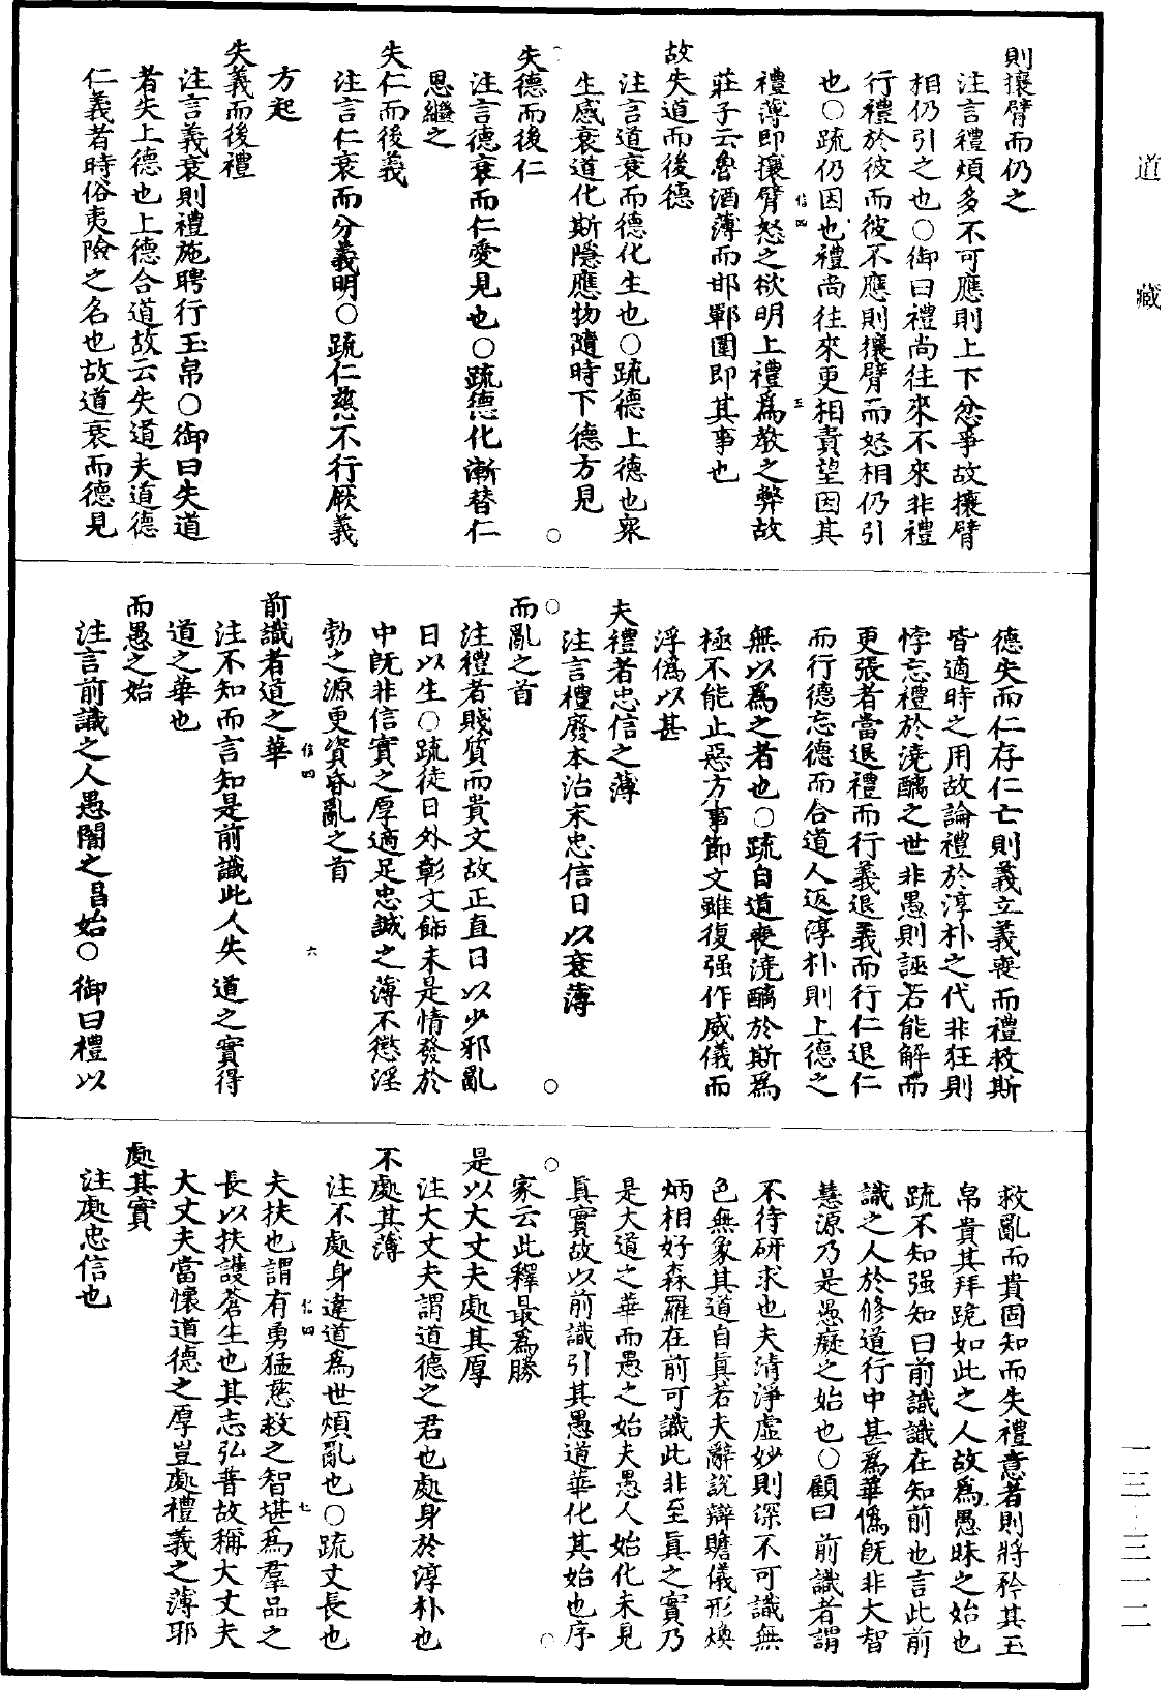 道藏
則攘臂而仍之
注言禮煩多不可應則上下忿爭故攘臂
相仍引之也○御曰禮尚往來不來非禮
行禮於彼而彼不應則攘臂而怒相仍引
也○疏仍因也禮尚往來更相責望因其
信四
五
禮薄即攘臂怒之欲明上禮為教之弊故
莊子云魯酒薄而邯鄲圍即其事也
故失道而後德
注言道衰而德化生也○疏德上德也衆
生感衰道化斯隱應物隨時下德方見
失德而後仁
注言德衰而仁愛見也○疏德化漸替仁
恩繼之
失仁而後義
注言仁衰而分義明○疏仁慈不行厥義
方起
失義而後禮
注言義衰則禮施聘行玉帛○御曰失道
者失上德也上德合道故云失道夫道德
仁義者時俗夷險之名也故道衰而德見
德失而仁存仁亡則義立義喪而禮救斯
皆適時之用故論禮於淳朴之代非狂則
悖忘禮於澆醨之世非愚則誣若能解而
更張者當退禮而行義退義而行仁退仁
而行德忘德而合道人返淳朴則上德之
無以為之者也○疏自道喪澆醨於斯為
極不能止惡方事節文雖復强作威儀而
浮偽以甚
夫禮者忠信之薄
注言禮廢本治末忠信日以衰薄
而亂之首
注禮者賤質而貴文故正直日以少邪亂
日以生○疏徒日外彰文飾未是情發於
中旣非信實之厚適足忠誠之薄不懲淫
勃之源更資昏亂之首
信四
六
前識者道之華
注不知而言知是前識此人失道之實得
道之華也
而愚之始
注言前識之人愚闇之昌始○御曰禮以
救亂而貴固知而失禮意者則將矜其玉
帛貴其拜跪如此之人故為愚昧之始也
疏不知强知曰前識識在知前也言此前
識之人於修道行中甚為華偽旣非大智
慧源乃是愚癡之始也○顧曰前識者謂
不待研求也夫清淨虛妙則深不可識無
色無象其道自眞若夫辭說辯贍儀形煥
炳相好森羅在前可識此非至眞之實乃
是大道之華而愚之始夫愚人始化未見
眞實故以前識引其愚道華化其始也序
家云此釋最為勝
是以大丈夫處其厚
注大丈夫謂道德之君也處身於淳朴也
不處其薄
注不處身違道為世煩亂也○疏丈長也
信四
七
夫扶也謂有勇猛慈救之智堪為羣品之
長以扶護蒼生也其志弘普故稱大丈夫
大丈夫當懷道德之厚豈處禮義之薄耶
處其實
注處忠信也
一三·三一二